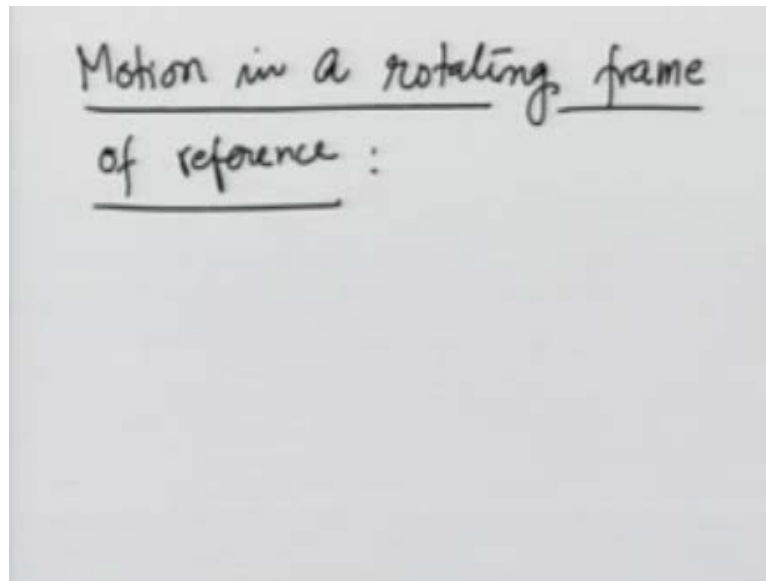 Motion in a rotating frame
of reference :